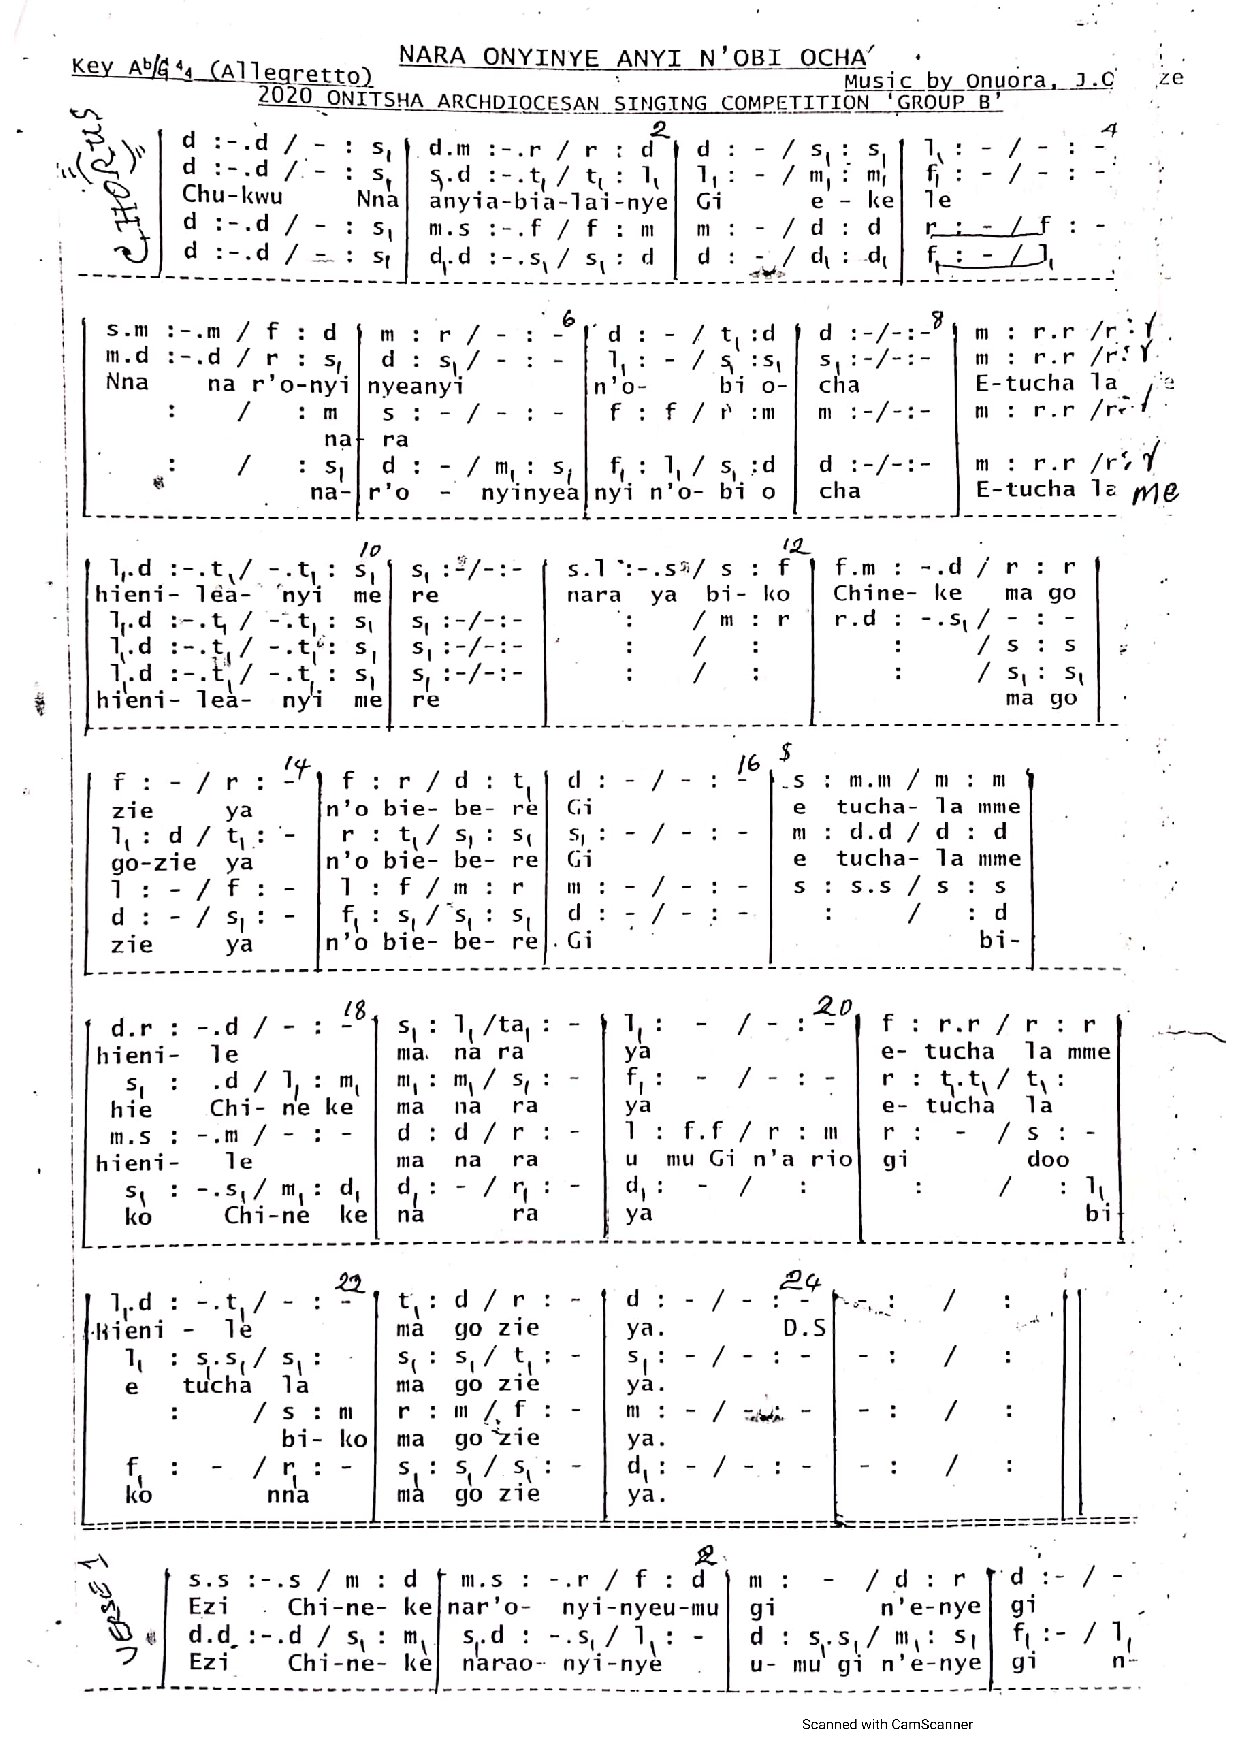 NARA ONYINYE ANYI N'OBI OCHA
Key Ab/G 4/4 (Allegretto)
Music by Onuora, J.C ze
2020 ONITSHA ARCHDIOCESAN SINGING COMPETITION 'GROUP B'
CHORUS
2 4
d :-.d / - : s₁ | d.m :-.r / r : d | d : - / s₁ : s₁ | l₁ : - / - : -
d :-.d / - : s₁ | s₁.d :-.t₁ / t₁ : l₁ | l₁ : - / m₁ : m₁ | f₁ : - / - : -
Chu-kwu Nna | anyia-bia-lai-nye | Gi e - ke | le
d :-.d / - : s₁ | m.s :-.f / f : m | m : - / d : d | r : - / f : -
d :-.d / - : s₁ | d₁.d :-.s₁ / s₁ : d | d : - / d₁ : d₁ | f₁ : - / l₁
6 8
s.m :-.m / f : d | m : r / - : - | d : - / t₁ :d | d :-/-:- | m : r.r /r : r
m.d :-.d / r : s₁ | d : s₁ / - : - | l₁ : - / s₁ :s₁ | s₁ :-/-:- | m : r.r /r : r
Nna na r'o-nyi | nyeanyi | n'o- bi o- | cha | E-tucha la
: / : m | s : - / - : - | f : f / r :m | m :-/-:- | m : r.r /r- r
na | ra
: / : s₁ | d : - / m₁ : s₁ | f₁ : l₁ / s₁ :d | d :-/-:- | m : r.r /r : r
na- | r'o - nyinyea | nyi n'o- bi o | cha | E-tucha la me
10 12
l₁.d :-.t₁ / -.t₁ : s₁ | s₁ :-/-:- | s.l :-.s / s : f | f.m : -.d / r : r
hieni- lea- nyi me | re | nara ya bi- ko | Chine- ke ma go
l₁.d :-.t₁ / -.t₁ : s₁ | s₁ :-/-:- | : / m : r | r.d : -.s₁ / - : -
l₁.d :-.t₁ / -.t₁ : s₁ | s₁ :-/-:- | : / : | : / s : s
l₁.d :-.t₁ / -.t₁ : s₁ | s₁ :-/-:- | : / : | : / s₁ : s₁
hieni- lea- nyi me | re | ma go
14 16 S
f : - / r : - | f : r / d : t₁ | d : - / - : - | .s : m.m / m : m
zie ya | n'o bie- be- re | Gi | e tucha- la mme
l₁ : d / t₁ : - | r : t₁ / s₁ : s₁ | s₁ : - / - : - | m : d.d / d : d
go-zie ya | n'o bie- be- re | Gi | e tucha- la mme
l : - / f : - | l : f / m : r | m : - / - : - | s : s.s / s : s
d : - / s₁ : - | f₁ : s₁ / s₁ : s₁ | d : - / - : - | : / : d
zie ya | n'o bie- be- re | Gi | bi-
18 20
d.r : -.d / - : - | s₁ : l₁ /ta₁ : - | l₁ : - / - : - | f : r.r / r : r
hieni- le | ma na ra | ya | e- tucha la mme
s₁ : .d / l₁ : m₁ | m₁ : m₁ / s₁ : - | f₁ : - / - : - | r : t₁.t₁ / t₁ :
hie Chi- ne ke | ma na ra | ya | e- tucha la
m.s : -.m / - : - | d : d / r : - | l : f.f / r : m | r : - / s : -
hieni- le | ma na ra | u mu Gi n'a rio | gi doo
s₁ : -.s₁ / m₁ : d₁ | d₁ : - / r₁ : - | d₁ : - / : | : / : l₁
ko Chi-ne ke | na ra | ya | bi
22 24
l₁.d : -.t₁ / - : - | t₁ : d / r : - | d : - / - : - | - : / :
hieni - le | ma go zie | ya. D.S
l₁ : s₁.s₁ / s₁ : | s₁ : s₁ / t₁ : - | s₁ : - / - : - | - : / :
e tucha la | ma go zie | ya.
: / s : m | r : m / f : - | m : - / - : - | - : / :
bi- ko | ma go zie | ya.
f₁ : - / r₁ : - | s₁ : s₁ / s₁ : - | d₁ : - / - : - | - : / :
ko nna | ma go zie | ya.
VERSE 1
2
s.s :-.s / m : d | m.s : -.r / f : d | m : - / d : r | d :- / -
Ezi Chi-ne- ke | nar'o- nyi-nyeu-mu | gi n'e-nye | gi
d.d :-.d / s₁ : m₁ | s₁.d : -.s₁ / l₁ : - | d : s₁.s₁ / m₁ : s₁ | f₁ :- / l₁
Ezi Chi-ne- ke | narao- nyi-nye | u- mu gi n'e-nye | gi n-
Scanned with CamScanner